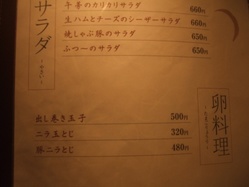 サラダ
牛蒡のカリカリサラダ 660円
生ハムとチーズのシーザーサラダ 660円
焼しゃぶ豚のサラダ 650円
ふつーのサラダ 650円
卵料理
出し巻き玉子 500円
ニラ玉とじ 320円
豚ニラとじ 480円